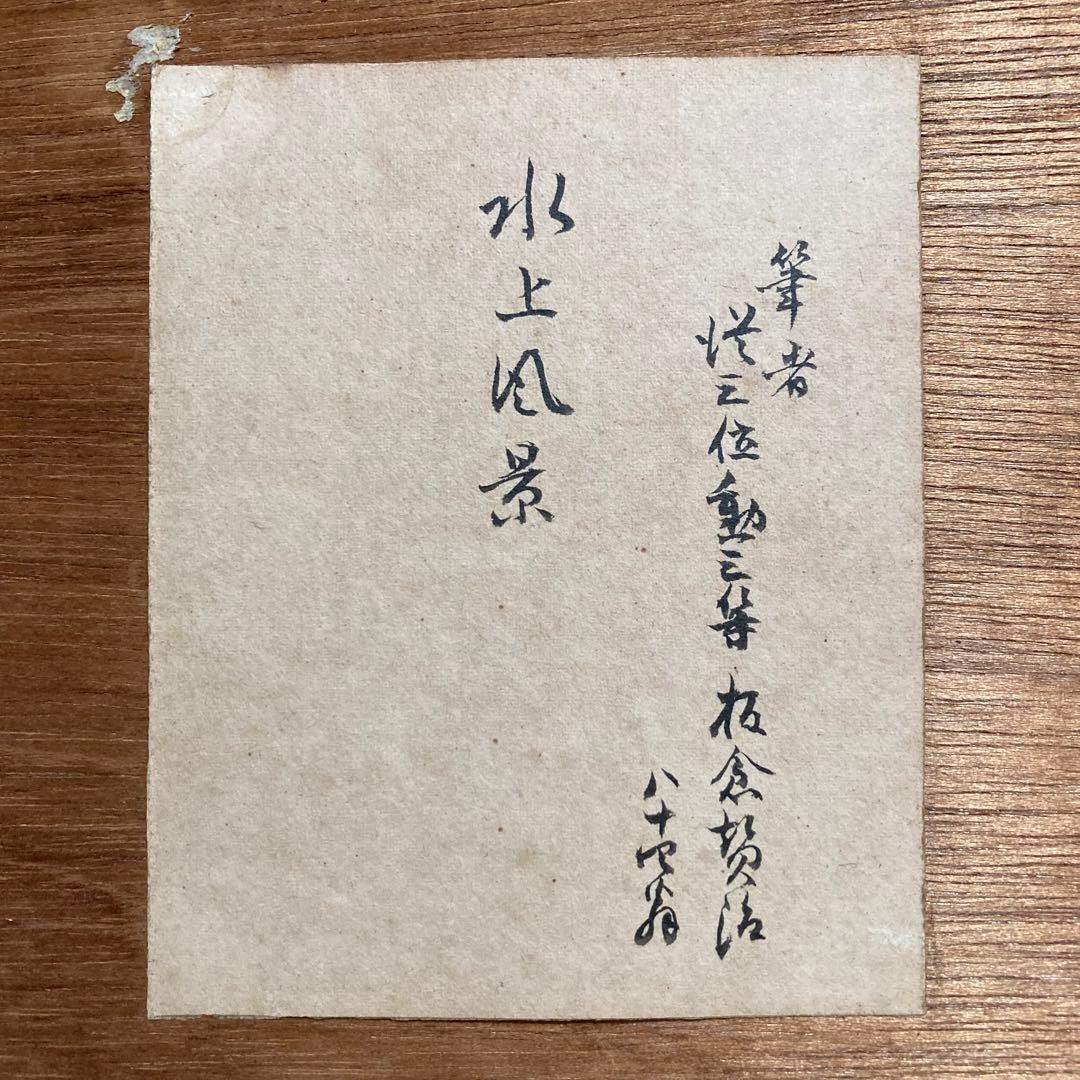 筆者
従三位勲三等 板倉賛治
八十四翁
水上風景